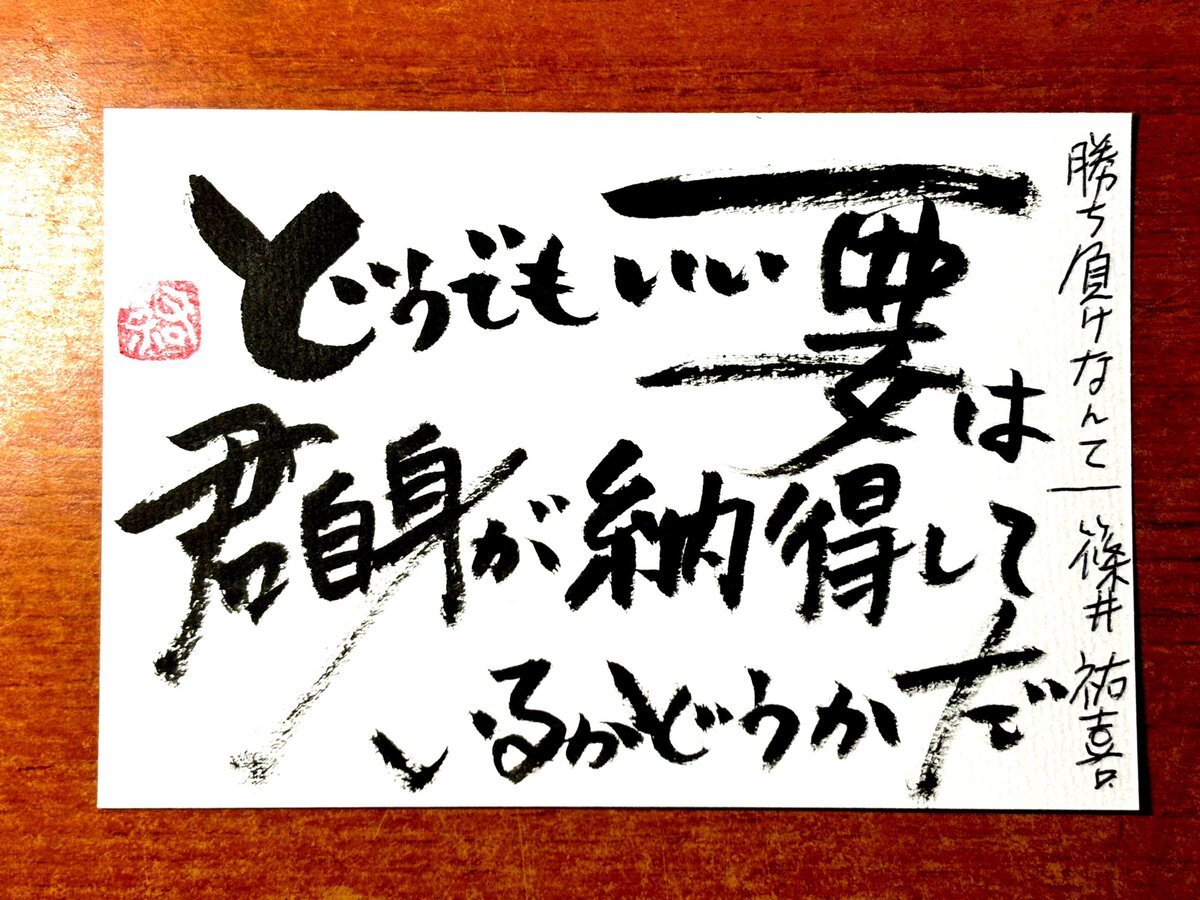 勝ち負けなんて
篠井 祐喜
どうでもいい 要は
君自身が納得して
いるかどうかだ